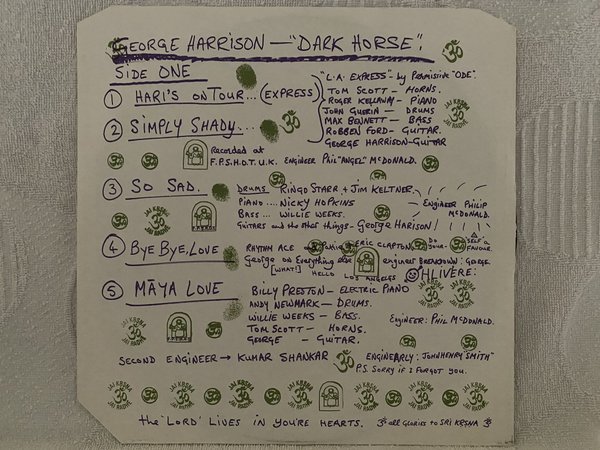 GEORGE HARRISON — "DARK HORSE".
SIDE ONE
① HARI'S ON TOUR... (EXPRESS)
"L.A. EXPRESS" - by Permissive "ODE".
TOM SCOTT - HORNS.
ROGER KELLAWAY - PIANO
JOHN GUERIN - DRUMS
MAX BENNETT - BASS
ROBBEN FORD - GUITAR.
GEORGE HARRISON - GUITAR
② SIMPLY SHADY...
Recorded at
F.P.S.H.O.T. U.K. ENGINEER PHIL "ANGEL" McDONALD.
③ SO SAD.
DRUMS - RINGO STARR + JIM KELTNER.
PIANO .... NICKY HOPKINS
BASS ... WILLIE WEEKS.
GUITARS and the other things - GEORGE HARISON!
ENGINEER PHILIP
McDONALD.
④ BYE BYE, LOVE
RHYTHM ACE
ERIC CLAPTON
DO
SELF A
FAVOUR.
George on Everything else
[WHAT!]
engineer BREAKDOWN: GEORGE.
HELLO LOS ANGELES
OHLIVERE:
⑤ MĀYA LOVE
BILLY PRESTON - ELECTRIC PIANO
ANDY NEWMARK - DRUMS.
WILLIE WEEKS - BASS.
TOM SCOTT - HORNS.
GEORGE - GUITAR.
ENGINEER: PHIL McDONALD.
SECOND ENGINEER → KUMAR SHANKAR ॐ
ENGINEARLY: JOHNHENRY "SMITH"
P.S. SORRY IF I FORGOT YOU.
JAI KRSNA
ॐ
JAI RADHE
the 'LORD' LIVES IN YOU'RE HEARTS. ॐ all GLORIES to SRI KRSNA ॐ